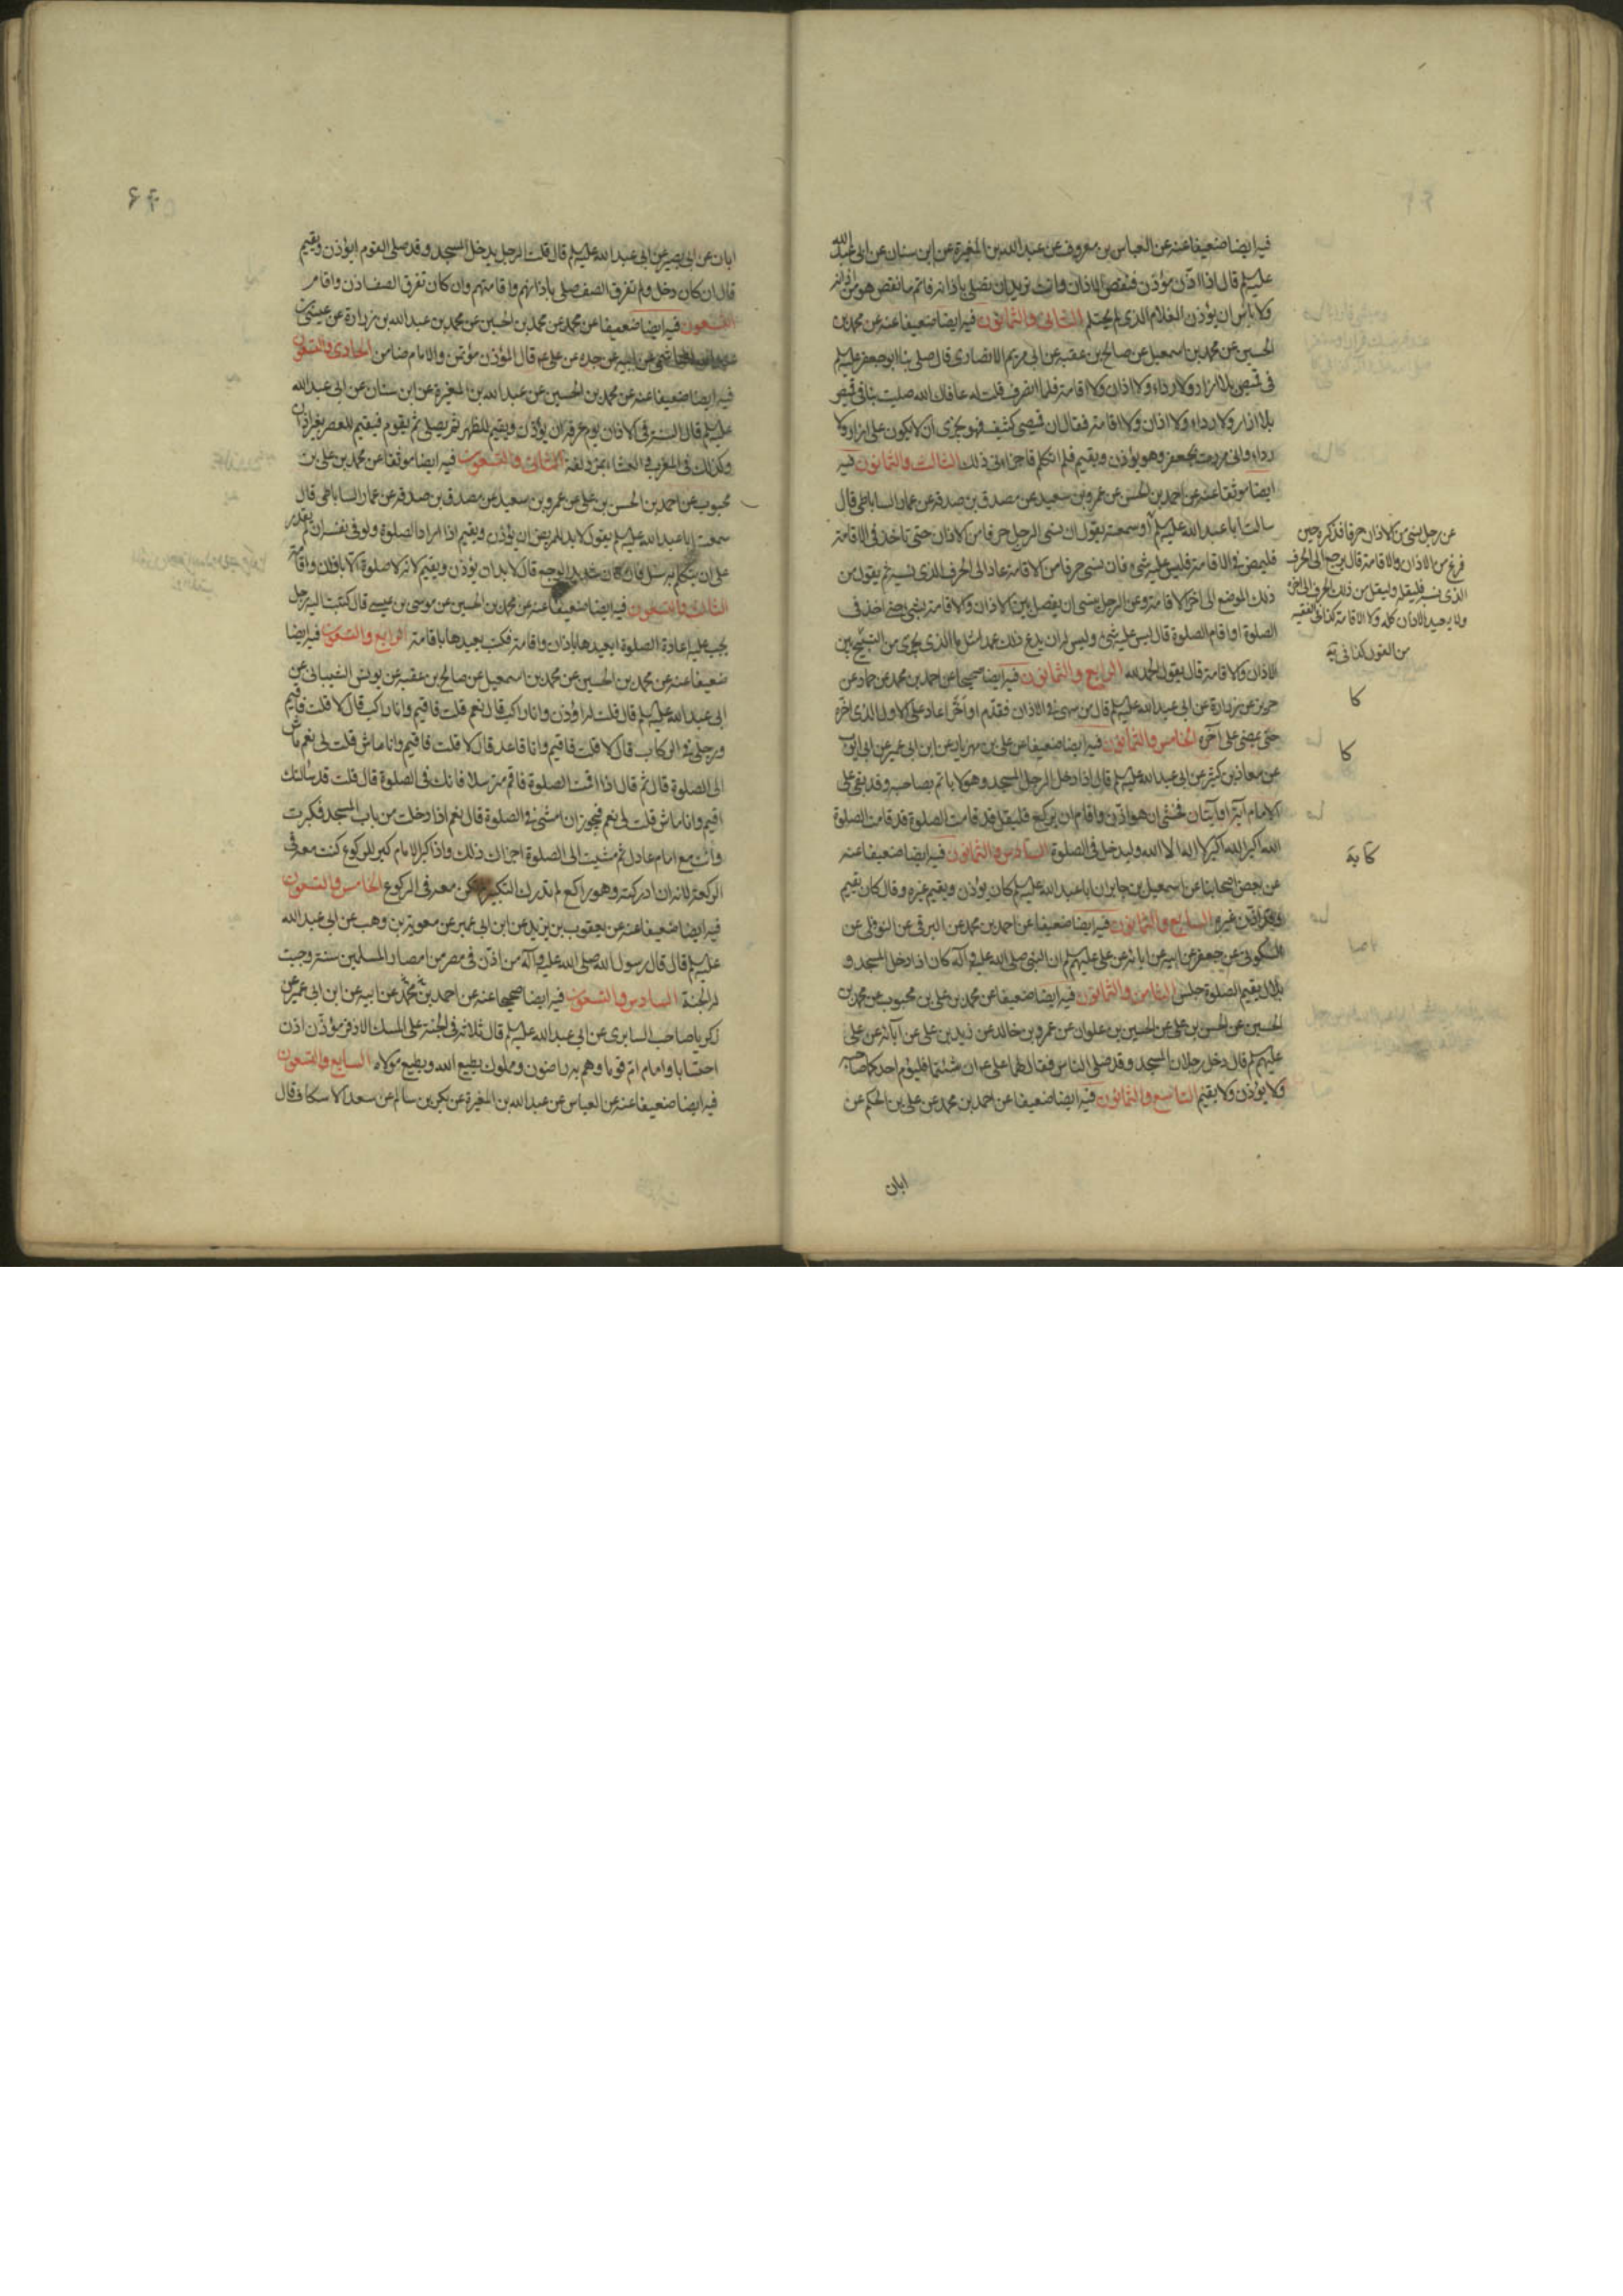 فيه ايضا ضعيفا عنه عن العباس بن معروف عن عبد الله بن المغيرة عن ابن سنان عن ابى عبد الله
عليه السلم قال اذا اذّن مؤذن فنقص الاذان وانت تريد ان تصلى باذانه فاتم ما نقص هو من اذانه
ولا باس ان يؤذن الغلام الذى لم يحتلم الثانى والثمانون فيه ايضا ضعيفا عنه عن محمد بن
الحسين عن محمد بن اسمعيل عن صالح بن عقبه عن ابى مريم الانصارى قال صلى بنا ابو جعفر عليه السلم
فى قميص بلا ازار ولا رداء ولا اذان ولا اقامة فلما انصرف قلت له عافاك الله صليت بنا فى قميص
بلا ازار ولا رداء ولا اذان ولا اقامة فقال ان قميصى كثيف فهو يجزى ان لا يكون على ازار ولا
رداء وانى مررت بجعفر وهو يؤذن ويقيم فلم اتكلم فاجزانى ذلك الثالث والثمانون فيه
ايضا موثقا عنه عن احمد بن الحسن عن عمرو بن سعيد عن مصدق بن صدقه عن عمار الساباطى قال
سالت ابا عبد الله عليه السلم او سمعته يقول ان نسى الرجل حرفا من الاذان حتى تاخذ فى الاقامة
فليمض فى الاقامة فليس عليه شىء فان نسى حرفا من الاقامة عاد الى الحرف الذى نسيه ثم يقول من
ذلك الموضع الى اخر الاقامة وعن الرجل ينسى ان يفصل بين الاذان والاقامة بشىء حتى اخذ فى
الصلوة او اقام الصلوة قال ليس عليه شىء وليس له ان يدع ذلك عمدا سئل ما الذى يجزى من التسبيح بين
الاذان والاقامة قال يقول الحمد لله الرابع والثمانون فيه ايضا صحيحا عن احمد بن محمد عن حماد عن
حريز عن زرارة عن ابى عبد الله عليه السلم قال من سهى فى الاذان فقدّم او اخّر اعاد على الاول الذى اخره
حتى يمضى على آخره الخامس والثمانون فيه ايضا ضعيفا عن على بن مهزيار عن ابن ابى عمير عن ابى ايوب
عن معاذ بن كثير عن ابى عبد الله عليه السلم قال اذا دخل الرجل المسجد وهو لا ياتم بصاحبه وقد بقى على
الامام آية او آيتان فخشى ان هو اذن واقام ان يركع فليقل قد قامت الصلوة قد قامت الصلوة
الله اكبر الله اكبر لا اله الا الله وليدخل فى الصلوة السادس والثمانون فيه ايضا ضعيفا عنه
عن بعض اصحابنا عن اسمعيل بن جابر ان ابا عبد الله عليه السلم كان يؤذن ويقيم غيره وقال كان يقيم
وقد اذن غيره السابع والثمانون فيه ايضا ضعيفا عن احمد بن محمد عن البرقى عن النوفلى عن
السكونى عن جعفر عن ابيه عن ابائه عن على عليهم السلم ان النبى صلى الله عليه وآله كان اذا دخل المسجد و
بلال يقيم الصلوة جلس الثامن والثمانون فيه ايضا ضعيفا عن محمد بن على بن محبوب عن محمد بن
الحسين عن الحسن بن على عن الحسين بن علوان عن عمرو بن خالد عن زيد بن على عن آبائه عن على
عليهم السلم قال دخل رجلان المسجد وقد صلى الناس فقال لهما على ع ان شئتما فليؤم احدكما صاحبه
ولا يؤذن ولا يقيم التاسع والثمانون فيه ايضا ضعيفا عن احمد بن محمد عن على بن الحكم عن
ابان
عن رجل نسى من الاذان حرفا فذكره حين
فرغ من الاذان والاقامة قال يرجع الى الحرف
الذى نسيه فليقله وليقل من ذلك الحرف الى اخره
ولا يعيد الاذان كله ولا الاقامة كذا فى الفقيه
كا
كا
ابان عن ابى بصير عن ابى عبد الله عليه السلم قال قلت الرجل يدخل المسجد وقد صلى القوم ايؤذن ويقيم
قال ان كان دخل ولم تفرق الصف صلى باذانهم واقامتهم وان كان تفرق الصف اذن واقام
التسعون فيه ايضا ضعيفا عن محمد عن محمد بن الحسين عن محمد بن عبد الله بن زرارة عن عيسى بن
عبد الله الهاشمى عن ابيه عن جده عن على ع قال المؤذن مؤتمن والامام ضامن الحادى والتسعون
فيه ايضا ضعيفا عنه عن محمد بن الحسين عن عبد الله بن المغيرة عن ابن سنان عن ابى عبد الله
عليه السلم قال السنة فى الاذان يوم عرفة ان يؤذن ويقيم للظهر ثم يصلى ثم يقوم فيقيم للعصر بغير اذان
وكذلك فى المغرب والعشاء بمزدلفة الثانى والتسعون فيه ايضا موثقا عن محمد بن على بن
محبوب عن احمد بن الحسن بن على عن عمرو بن سعيد عن مصدق بن صدقه عن عمار الساباطى قال
سمعت ابا عبد الله عليه السلم يقول لابد للمريض ان يؤذن ويقيم اذا اراد الصلوة ولو فى نفسه ان لم يقدر
على ان يتكلم به سئل فان كان شديد الوجع قال لابد ان يؤذن ويقيم لانه لا صلوة الا باذان واقامة
الثالث والتسعون فيه ايضا ضعيفا عنه عن محمد بن الحسين عن موسى بن عيسى قال كتبت اليه رجل
يجب عليه اعادة الصلوة ايعيدها باذان واقامة فكتب يعيدها باقامة الرابع والتسعون فيه ايضا
ضعيفا عنه عن محمد بن الحسين عن محمد بن اسمعيل عن صالح بن عقبه عن يونس الشيبانى عن
ابى عبد الله عليه السلم قال قلت له اؤذن وانا راكب قال نعم قلت فاقيم وانا راكب قال لا قلت فاقيم
ورجلى فى الركاب قال لا قلت فاقيم وانا قاعد قال لا قلت فاقيم وانا ماش قلت لى نعم ماش
الى الصلوة قال ثم قال اذا اقمت الصلوة فاقم مترسلا فانك فى الصلوة قال قلت قد سالتك
اقيم وانا ماش قلت لى نعم فيجوز ان امشى فى الصلوة قال نعم اذا دخلت من باب المسجد فكبرت
وانت مع امام عادل ثم مشيت الى الصلوة اجزاك ذلك واذا كبر الامام كبر للركوع كنت معه فى
الركعة لانه ان ادركته وهو راكع لم تدرك التكبير لم تكن معه فى الركوع الخامس والتسعون
فيه ايضا ضعيفا عنه عن يعقوب بن يزيد عن ابن ابى عمير عن معوية بن وهب عن ابى عبد الله
عليه السلم قال قال رسول الله صلى الله عليه وآله من اذّن فى مصر من امصار المسلمين سنة وجبت
له الجنة السادس والتسعون فيه ايضا صحيحا عنه عن احمد بن محمد عن ابيه عن ابن ابى عمير عن
زكريا صاحب السابرى عن ابى عبد الله عليه السلم قال ثلاثة فى الجنة على المسك الاذفر مؤذّن اذن
احتسابا وامام امّ قوما وهم به راضون ومملوك يطيع الله ويطيع مولاه السابع والتسعون
فيه ايضا ضعيفا عنه عن العباس عن عبد الله بن المغيرة عن بكر بن سالم عن سعد الاسكاف قال